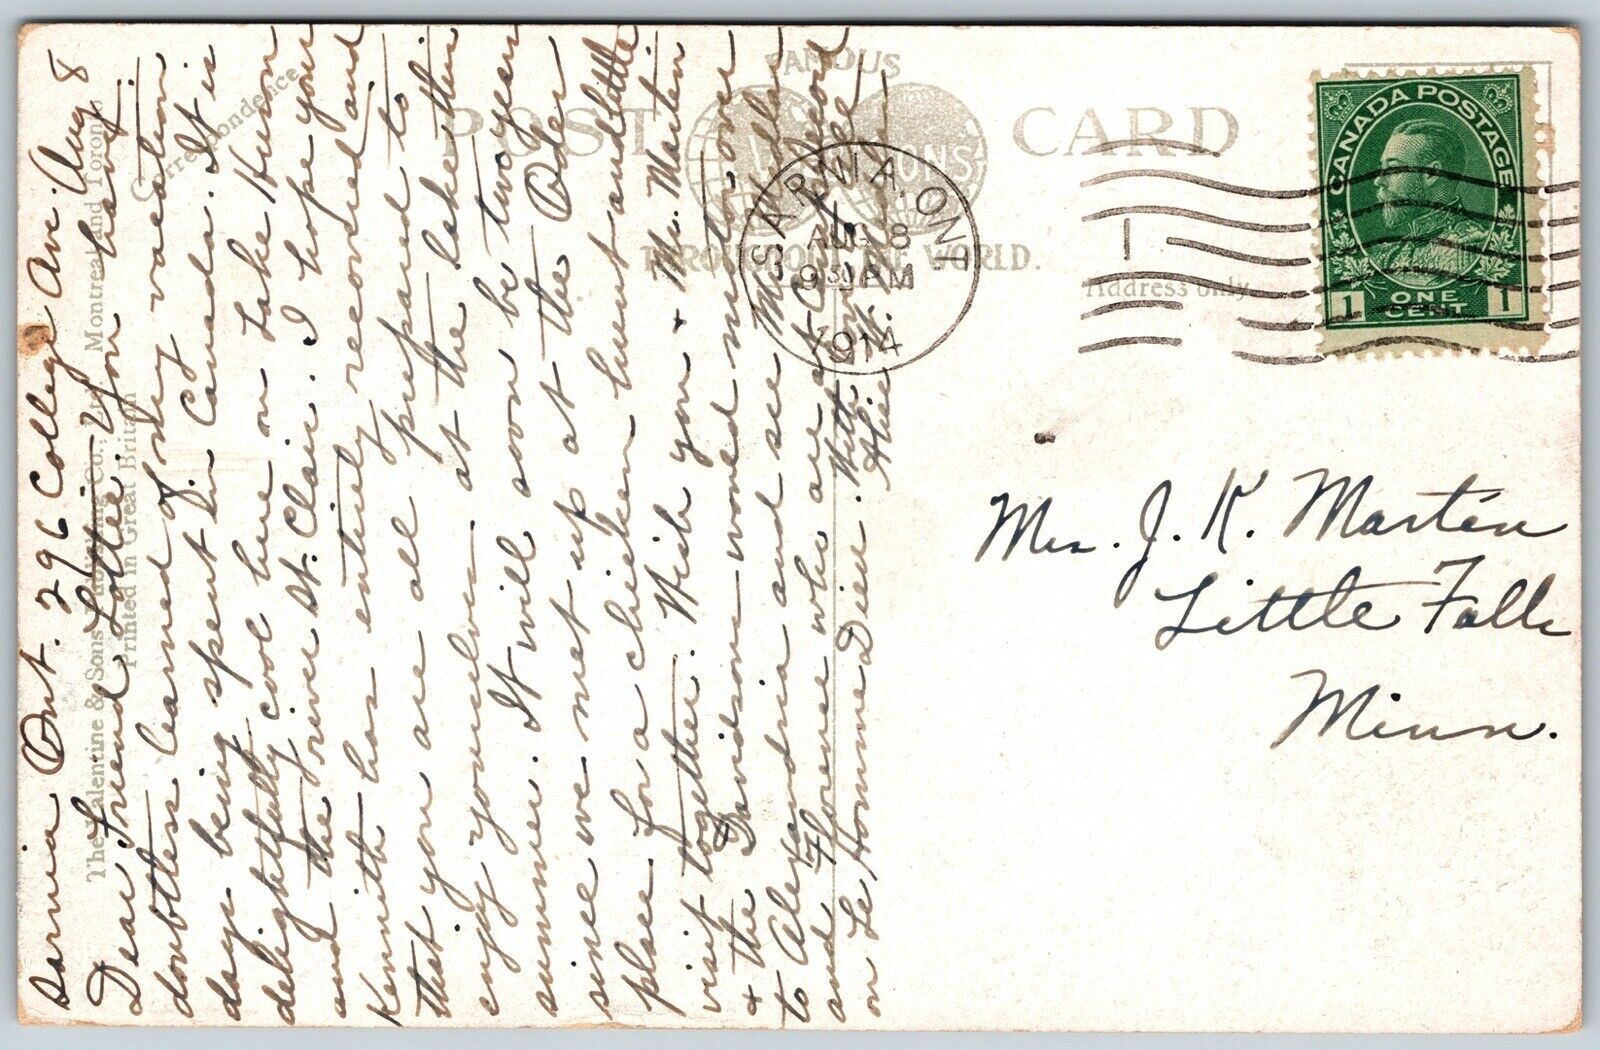 Sarnia Ont. 296 College Ave. Aug 8
Dear Friend Lottie: You have
doubtless learned of my vacation
days being spent in Canada. It is
delightfully cool here on Lake Huron
and the river St. Clair. I hope your
Kennith has entirely recovered and
that you are all prepared to
enjoy yourselves at the lake this
summer. It will soon be two years
since we met up at the Oder
place for a chicken hunt and little
visit together. Wish you & Mr. Martin
& the Davidsons would motor over
to Alexandria and see Mr.
and Florence who are at
on Le Homme Dieu. With
POST CARD
FAMOUS
THROUGHOUT THE WORLD.
Correspondence
Address only
The Valentine & Sons Publishing Co., Ltd. Montreal and Toronto
Printed in Great Britain
SARNIA, ONT
AUG 8
9 30 PM
1914
1
CANADA POSTAGE
1 ONE CENT 1
Mrs. J. K. Martin
Little Falls
Minn.